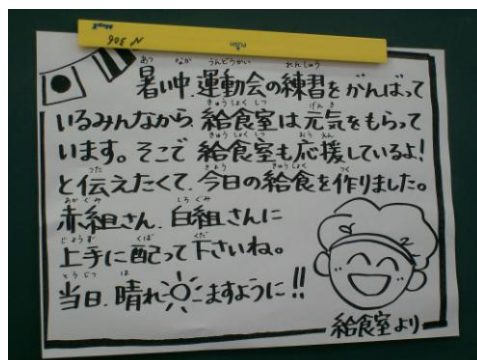 暑い中、運動会の練習をがんばって
いるみんなから、給食室は元気をもらって
います。そこで給食室も応援しているよ!
と伝えたくて、今日の給食を作りました。
赤組さん、白組さんに
上手に配って下さいね。
当日、晴れますように!!
給食室より